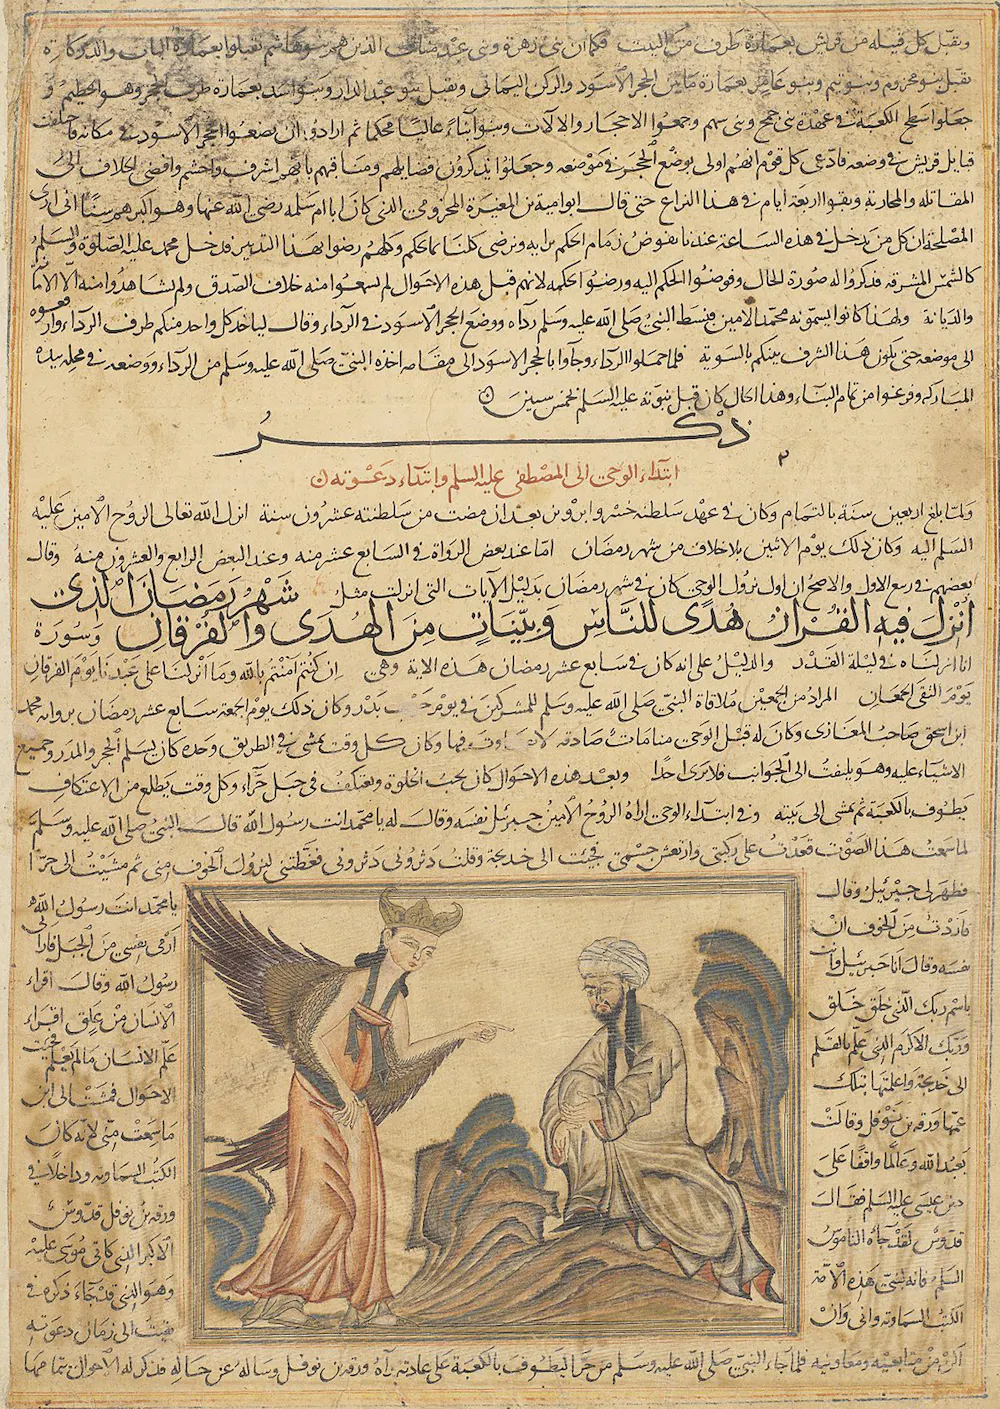 ويقبل كل قبيلة من قريش بعمارة طرف من البيت فكان بنى زهرة وبنى عبد مناف الذين هم بنو هاشم تقبلوا بعمارة الباب
بنو مخزوم وبنو تيم وبنو عامر بعمارة ما بين الحجر الاسود والركن اليمانى وتقبل بنو عبد الدار وبنو اسد بعمارة طرف الحجر وهو الحطيم و
جعلوا سطح الكعبة فى عهدة بنى جمح وبنى سهم وجمعوا الاحجار والالات وبنوا بناء عاليا محكما ثم ارادوا ان يضعوا الحجر الاسود فى مكانه فاختلفت
قبايل قريش فى وضعه فادعى كل قوم انهم اولى بوضع الحجر فى موضعه وجعلوا يذكرون فضايلهم ومناقبهم بانهم اشرف واحشم وافضى الخلاف الى
المقاتلة والمحاربة وبقوا اربعة ايام فى هذا النزاع حتى قال ابو امية بن المغيرة المخزومى الذى كان ابا ام سلمة رضى الله عنها وهو اكبرهم سنا انى ارى
المصلحة ان كل من يدخل فى هذه الساعة عندنا نفوض زمام الحكم برايه ونرضى كلنا بما حكم وكلهم رضوا بهذا التدبير فدخل محمد عليه الصلوة والسلم
كالشمس المشرقة فذكروا له صورة الحال وفوضوا الحكم اليه ورضوا بحكمه لانهم قبل هذه الاحوال لم يسمعوا منه خلاف الصدق ولم يشاهدوا منه الا الامانة
والديانة ولهذا كانوا يسمونه محمد الامين فبسط النبى صلى الله عليه وسلم رداه ووضع الحجر الاسود فى الرداء وقال لياخذ كل واحد منكم طرف الرداء وارفعوه
الى موضعه حتى يكون هذا الشرف بينكم بالسوية فلما حملوا الرداء وجاوا بالحجر الاسود الى مقامه اخذه النبى صلى الله عليه وسلم من الرداء ووضعه فى محله بيده
المباركة وفرغوا من تمام البناء وهذا الحال كان قبل نبوته عليه السلم بخمس سنين
ذكر
ابتداء الوحى الى المصطفى عليه السلم وابتداء دعوته
ولما بلغ اربعين سنة بالتمام وكان فى عهد سلطنة خسرو ابرويز بعد ان مضت من سلطنته عشرون سنة انزل الله تعالى الروح الامين عليه
السلم اليه وكان ذلك يوم الاثنين بلا خلاف من شهر رمضان اما عند بعض الرواة فى السابع عشر منه وعند البعض الرابع والعشرون منه وقال
بعضهم فى ربيع الاول والاصح ان اول نزول الوحى كان فى شهر رمضان بدليل الآيات التى انزلت مثل شَهْرُ رَمَضَانَ الَّذِى
اُنْزِلَ فِيهِ الْقُرْآنُ هُدًى لِلنَّاسِ وَبَيِّنَاتٍ مِنَ الْهُدَى وَالْفُرْقَانِ وسورة
انا انزلناه فى ليلة القدر والدليل على انه كان فى سابع عشر رمضان هذه الاية وهى ان كنتم آمنتم بالله وما انزلنا على عبدنا يوم الفرقان
يوم التقى الجمعان المراد من الجمعين ملاقاة النبى صلى الله عليه وسلم للمشركين فى يوم حرب بدر وكان ذلك يوم الجمعة سابع عشر رمضان برواية محمد
ابن اسحق صاحب المغازى وكان له قبل الوحى منامات صادقة وكان كل وقت يمشى فى الطريق وحده كان يسلم الحجر والمدر وجميع
الاشياء عليه وهو يلتفت الى الجوانب فلا يرى احدا وبعد هذه الاحوال كان يحب الخلوة ويعتكف فى جبل حراء وكل وقت يطلع من الاعتكاف
يطوف بالكعبة ثم يمشى الى بيته وفى ابتداء الوحى اراه الروح الامين جبرئيل نفسه وقال له يا محمد انت رسول الله قال النبى صلى الله عليه وسلم
لما سمعت هذا الصوت قعدت على ركبتى وارتعش جسمى فجيت الى خديجة وقلت دثرونى دثرونى فغطتنى لنزول الخوف منى ثم مشيت الى حرا
فظهر لى جبرئيل وقال يا محمد انت رسول الله
فاردت من الخوف ان ارمى نفسى من الجبل فارانى
نفسه وقال انا جبرئيل وانت رسول الله وقال اقراء
باسم ربك الذى خلق خلق الانسان من علق اقراء
وربك الاكرم الذى علم بالقلم علم الانسان ما لم يعلم فجيت
الى خديجة واعلمتها بتلك الاحوال فمشت الى ابن
عمها ورقة بن نوفل وقالت ما سمعت منى لانه كان
يعبد الله وعالما واقفا على الكتب السماوية وداخلا فى
دين عيسى عليه السلم فقال ورقة بن نوفل قدوس
قدوس لقد جاءه الناموس الاكبر الذى كان موسى عليه
السلم فانه لنبى هذه الامة وهو الذى قد جاء ذكره فى
الكتب السماوية وانى وان الى زمان دعوته
اكن من متابعيه ومعاونيه فلما جاء النبى صلى الله عليه وسلم من حرا ليطوف بالكعبة على عادته رآه ورقة بن نوفل وساله عن حاله فذكر له الاحوال بتمامها